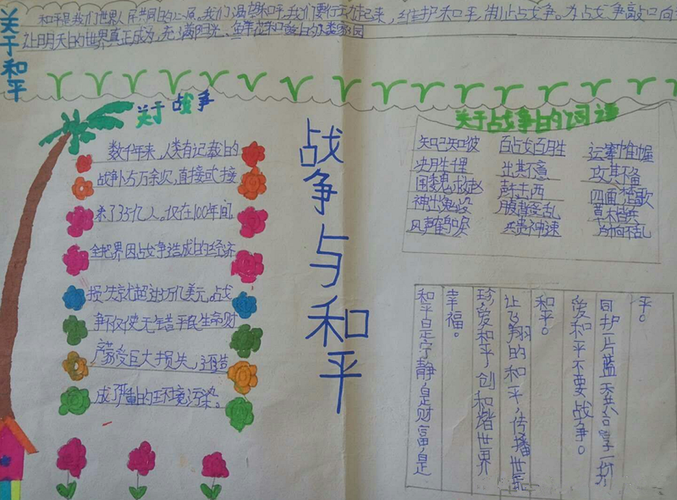 关于和平
和平是我们世界人民共同的心愿,我们渴望和平,我们要行动起来,维护和平,制止战争。为战争敲
让明天的世界真正成为充满阳光、鲜花和
关于战争
数千年来,人类有记载的
战
杀了35亿人。仅在100年间,
全世界因战争造成的经济
损失就超过万亿美元。战
争不仅使无辜平民生命财
产蒙受巨大损失,还造
成严重的环境污染。
战争与和平
关于战争的词语
知己知彼 百战百胜 运筹帷幄
决胜千里 出其不意 攻其不备
围魏救赵 声东击西 四面楚歌
神出鬼没 腹背受乱 草木皆兵
风声鹤唳 兵贵神速 临危不乱
平。
同护一片蓝天共享一份
爱和平不要战争。
和平。
让飞翔的和平,传播世界
珍爱和平创和谐世界
幸福。
和平是宁静,是财富,是